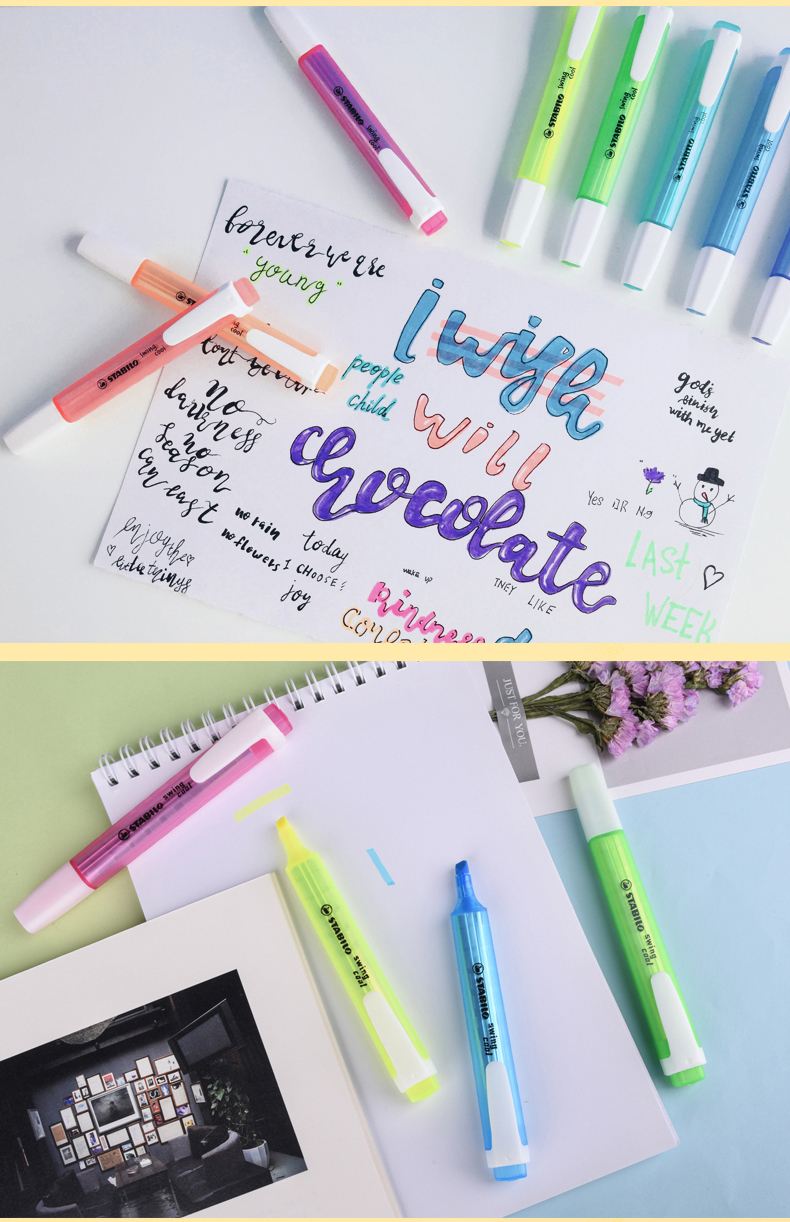 STABILO swing cool
STABILO swing cool
STABILO swing cool
STABILO swing cool
STABILO swing cool
forever we are
"young"
STABILO swing cool
cool
people
child
no
darkness
no
season
can east
enjoy the
little things
no rain
no flowers
today
I CHOOSE
joy
i wish
will
chocolate
wake up
THEY
LIKE
kindness
god's
finish
with me yet
Yes OR No
LAST
WEEK
JUST FOR YOU.
STABILO swing cool
STABILO swing cool
STABILO swing cool
STABILO swing cool